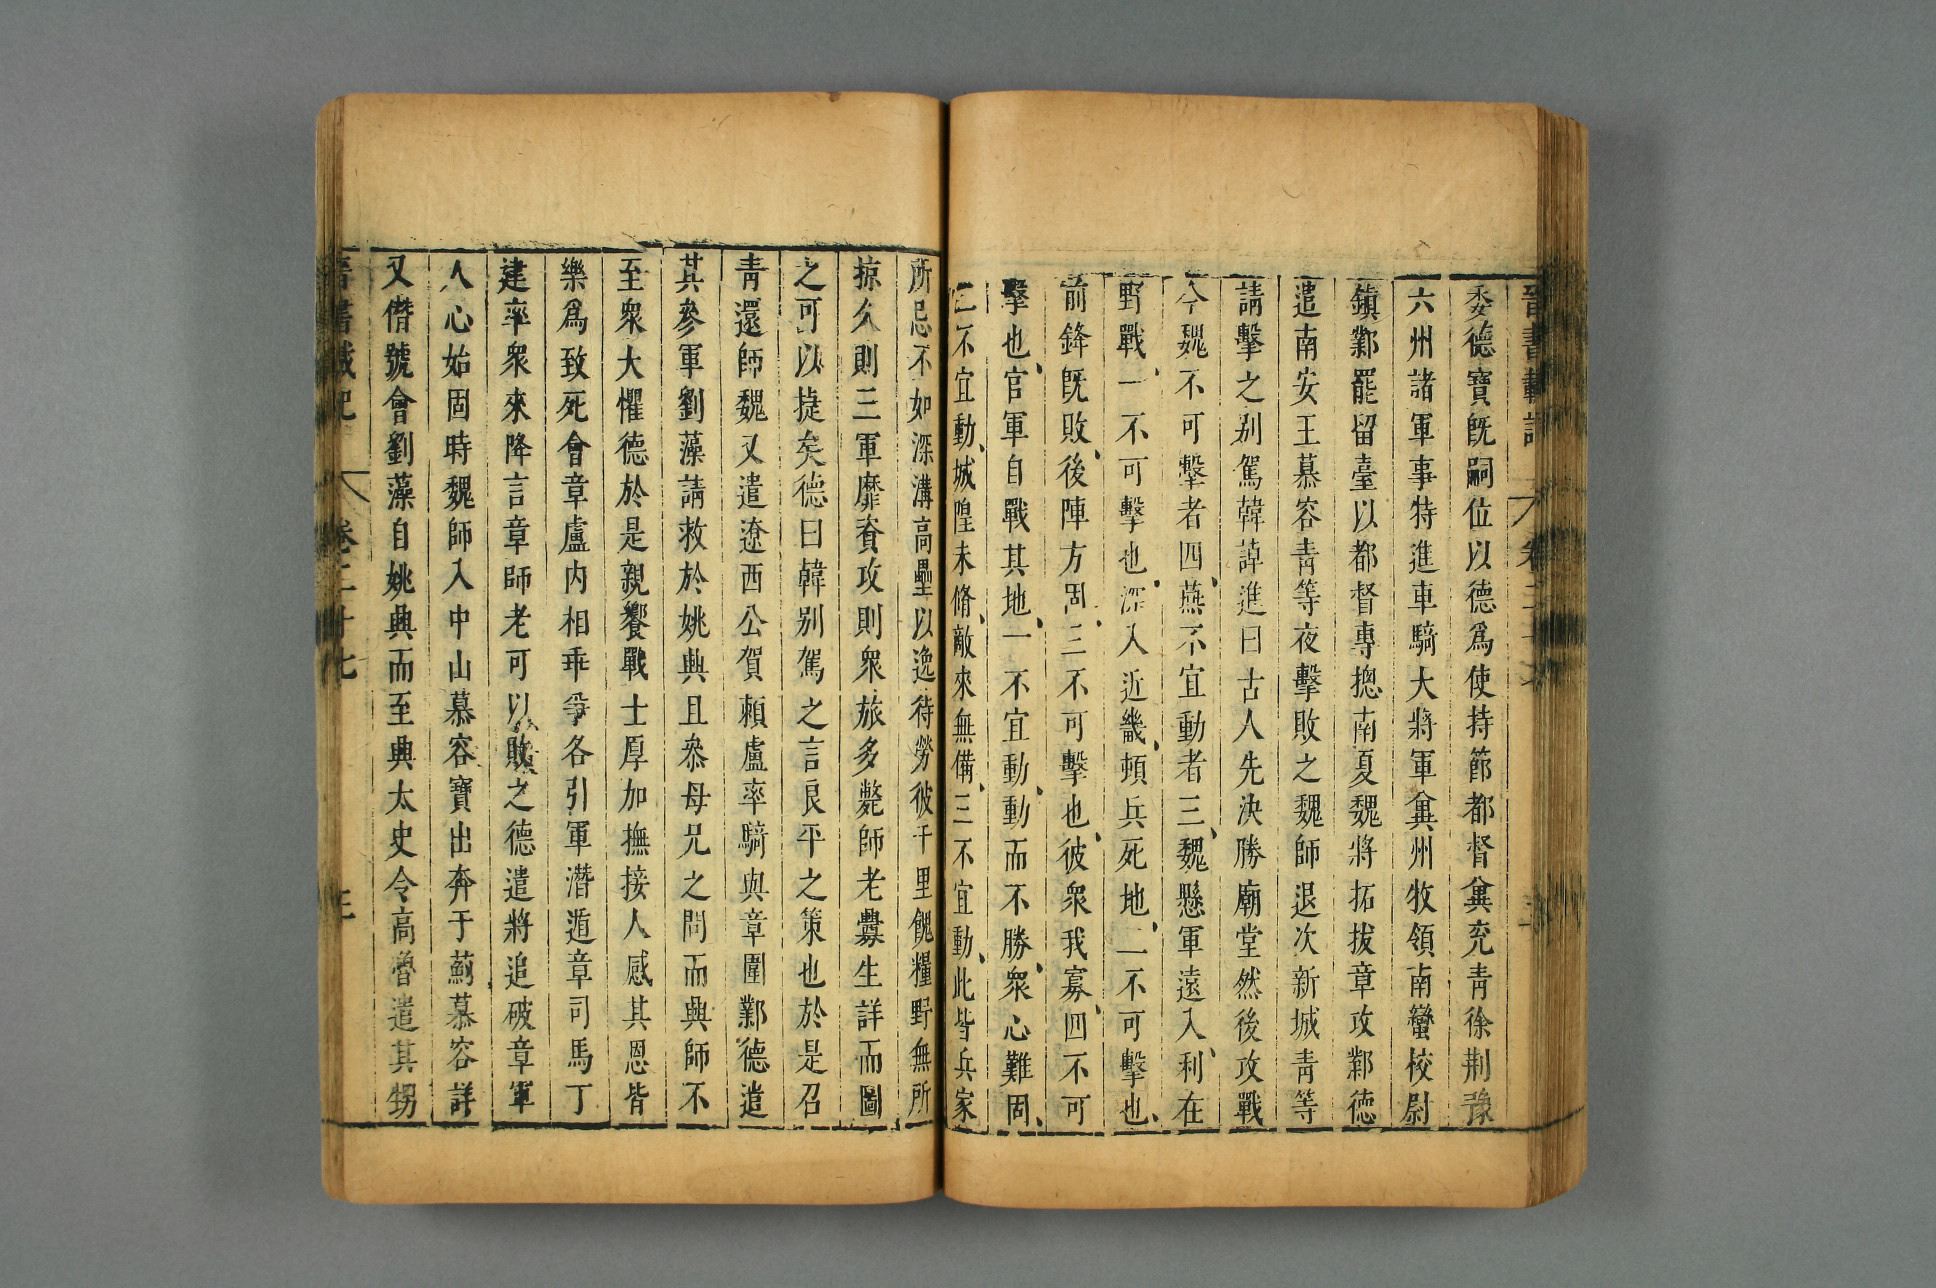 晉書載記 卷二十七
委德寶既嗣位以德爲使持節都督冀兗青徐荆豫
六州諸軍事特進車騎大將軍冀州牧領南蠻校尉
鎮鄴罷留臺以都督專摠南夏魏將拓拔章攻鄴德
遣南安王慕容青等夜擊敗之魏師退次新城青等
請擊之别駕韓𧨳進曰古人先決勝廟堂然後攻戰
今魏不可擊者四燕不宜動者三魏懸軍遠入利在
野戰一不可擊也深入近畿頓兵死地二不可擊也
前鋒既敗後陣方固三不可擊也彼衆我寡四不可
擊也官軍自戰其地一不宜動動而不勝衆心難固
二不宜動城隍未脩敵來無備三不宜動此皆兵家
所忌不如深溝高壘以逸待勞彼千里餽糧野無所
掠久則三軍靡資攻則衆旅多斃師老釁生詳而圖
之可以捷矣德曰韓别駕之言良平之策也於是召
青還師魏又遣遼西公賀賴盧率騎與章圍鄴德遣
其參軍劉藻請救於姚興且叅母兄之問而興師不
至衆大懼德於是親饗戰士厚加撫接人感其恩皆
樂爲致死會章盧内相乖爭各引軍潛遁章司馬丁
建率衆來降言章師老可以敗之德遣將追破章軍
人心始固時魏師入中山慕容寶出奔于薊慕容詳
又僭號會劉藻自姚興而至興太史令高魯遣其甥
晉書載記 卷二十七 三